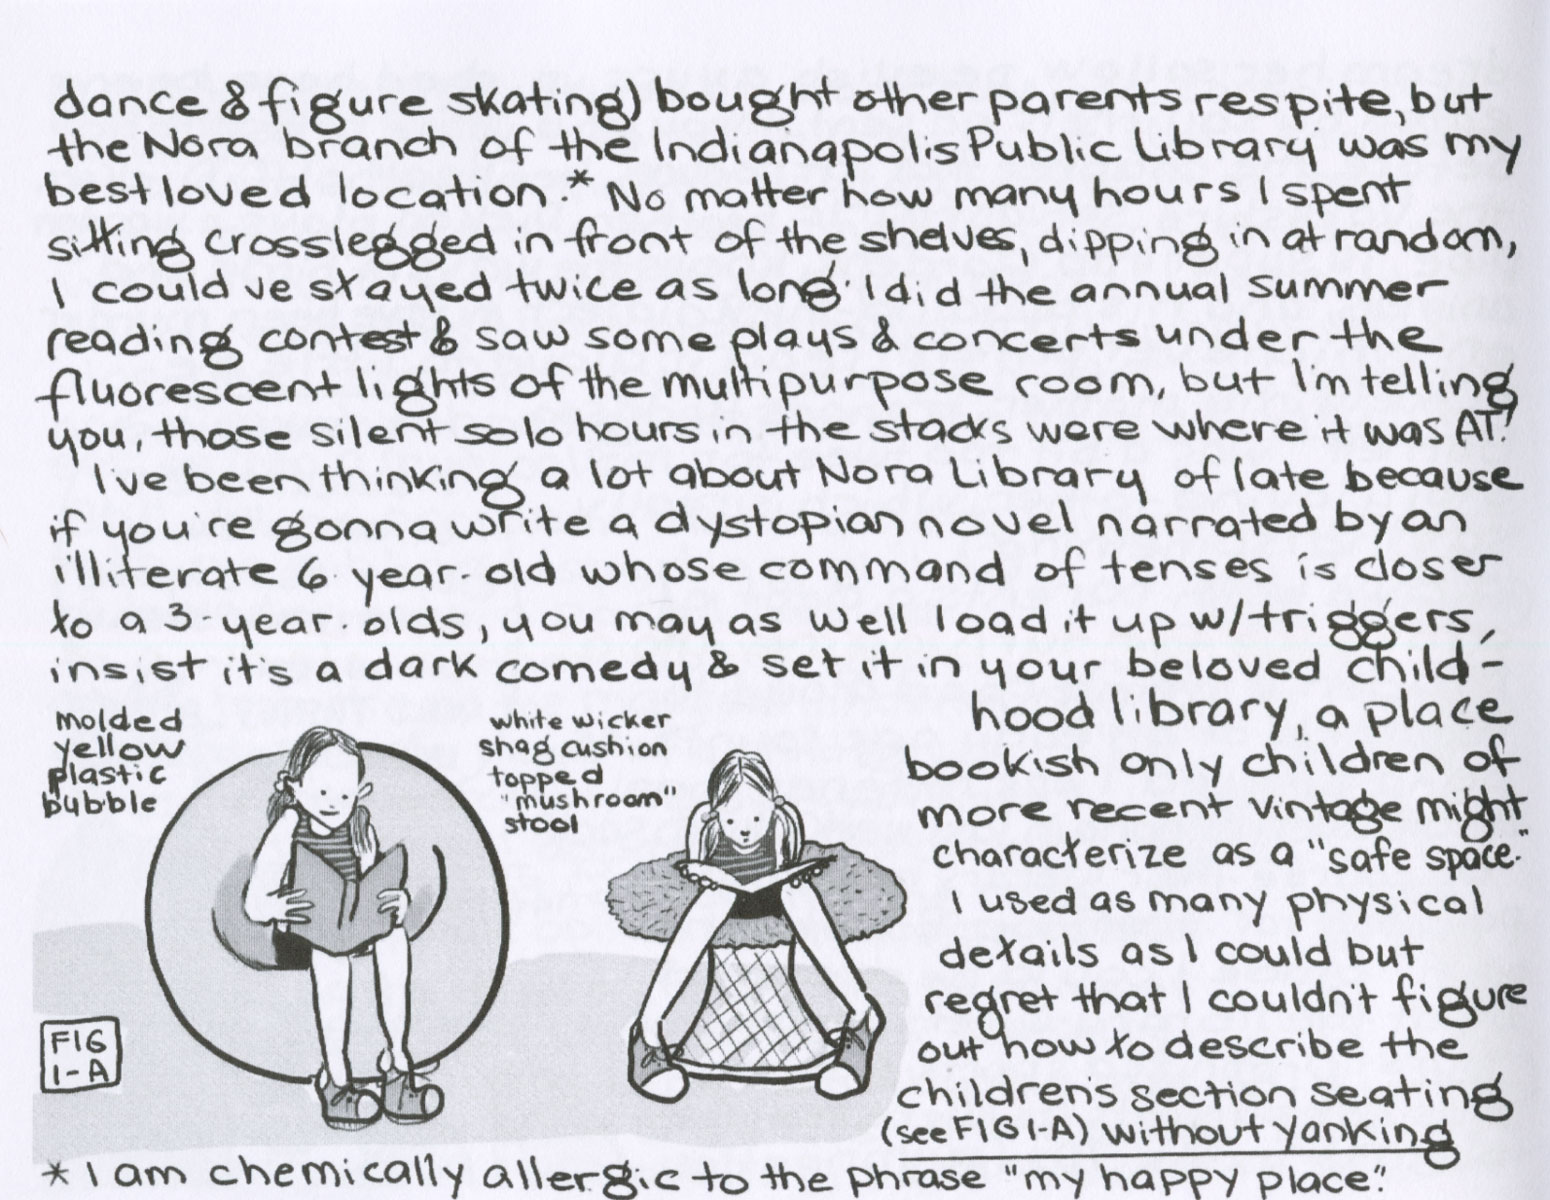 dance & figure skating) bought other parents respite, but
the Nora branch of the Indianapolis Public Library was my
best loved location.* No matter how many hours I spent
sitting crosslegged in front of the shelves, dipping in at random,
I could've stayed twice as long. I did the annual summer
reading contest & saw some plays & concerts under the
fluorescent lights of the multipurpose room, but I'm telling
you, those silent solo hours in the stacks were where it was AT!
I've been thinking a lot about Nora Library of late because
if you're gonna write a dystopian novel narrated by an
illiterate 6-year-old whose command of tenses is closer
to a 3-year-olds, you may as well load it up w/triggers,
insist it's a dark comedy & set it in your beloved child-
hood library, a place
bookish only children of
more recent vintage might
characterize as a "safe space."
I used as many physical
details as I could but
regret that I couldn't figure
out how to describe the
children's section seating
(see FIG 1-A) without yanking
molded
yellow
plastic
bubble
white wicker
shag cushion
topped
"mushroom"
stool
FIG
1-A
* I am chemically allergic to the phrase "my happy place."